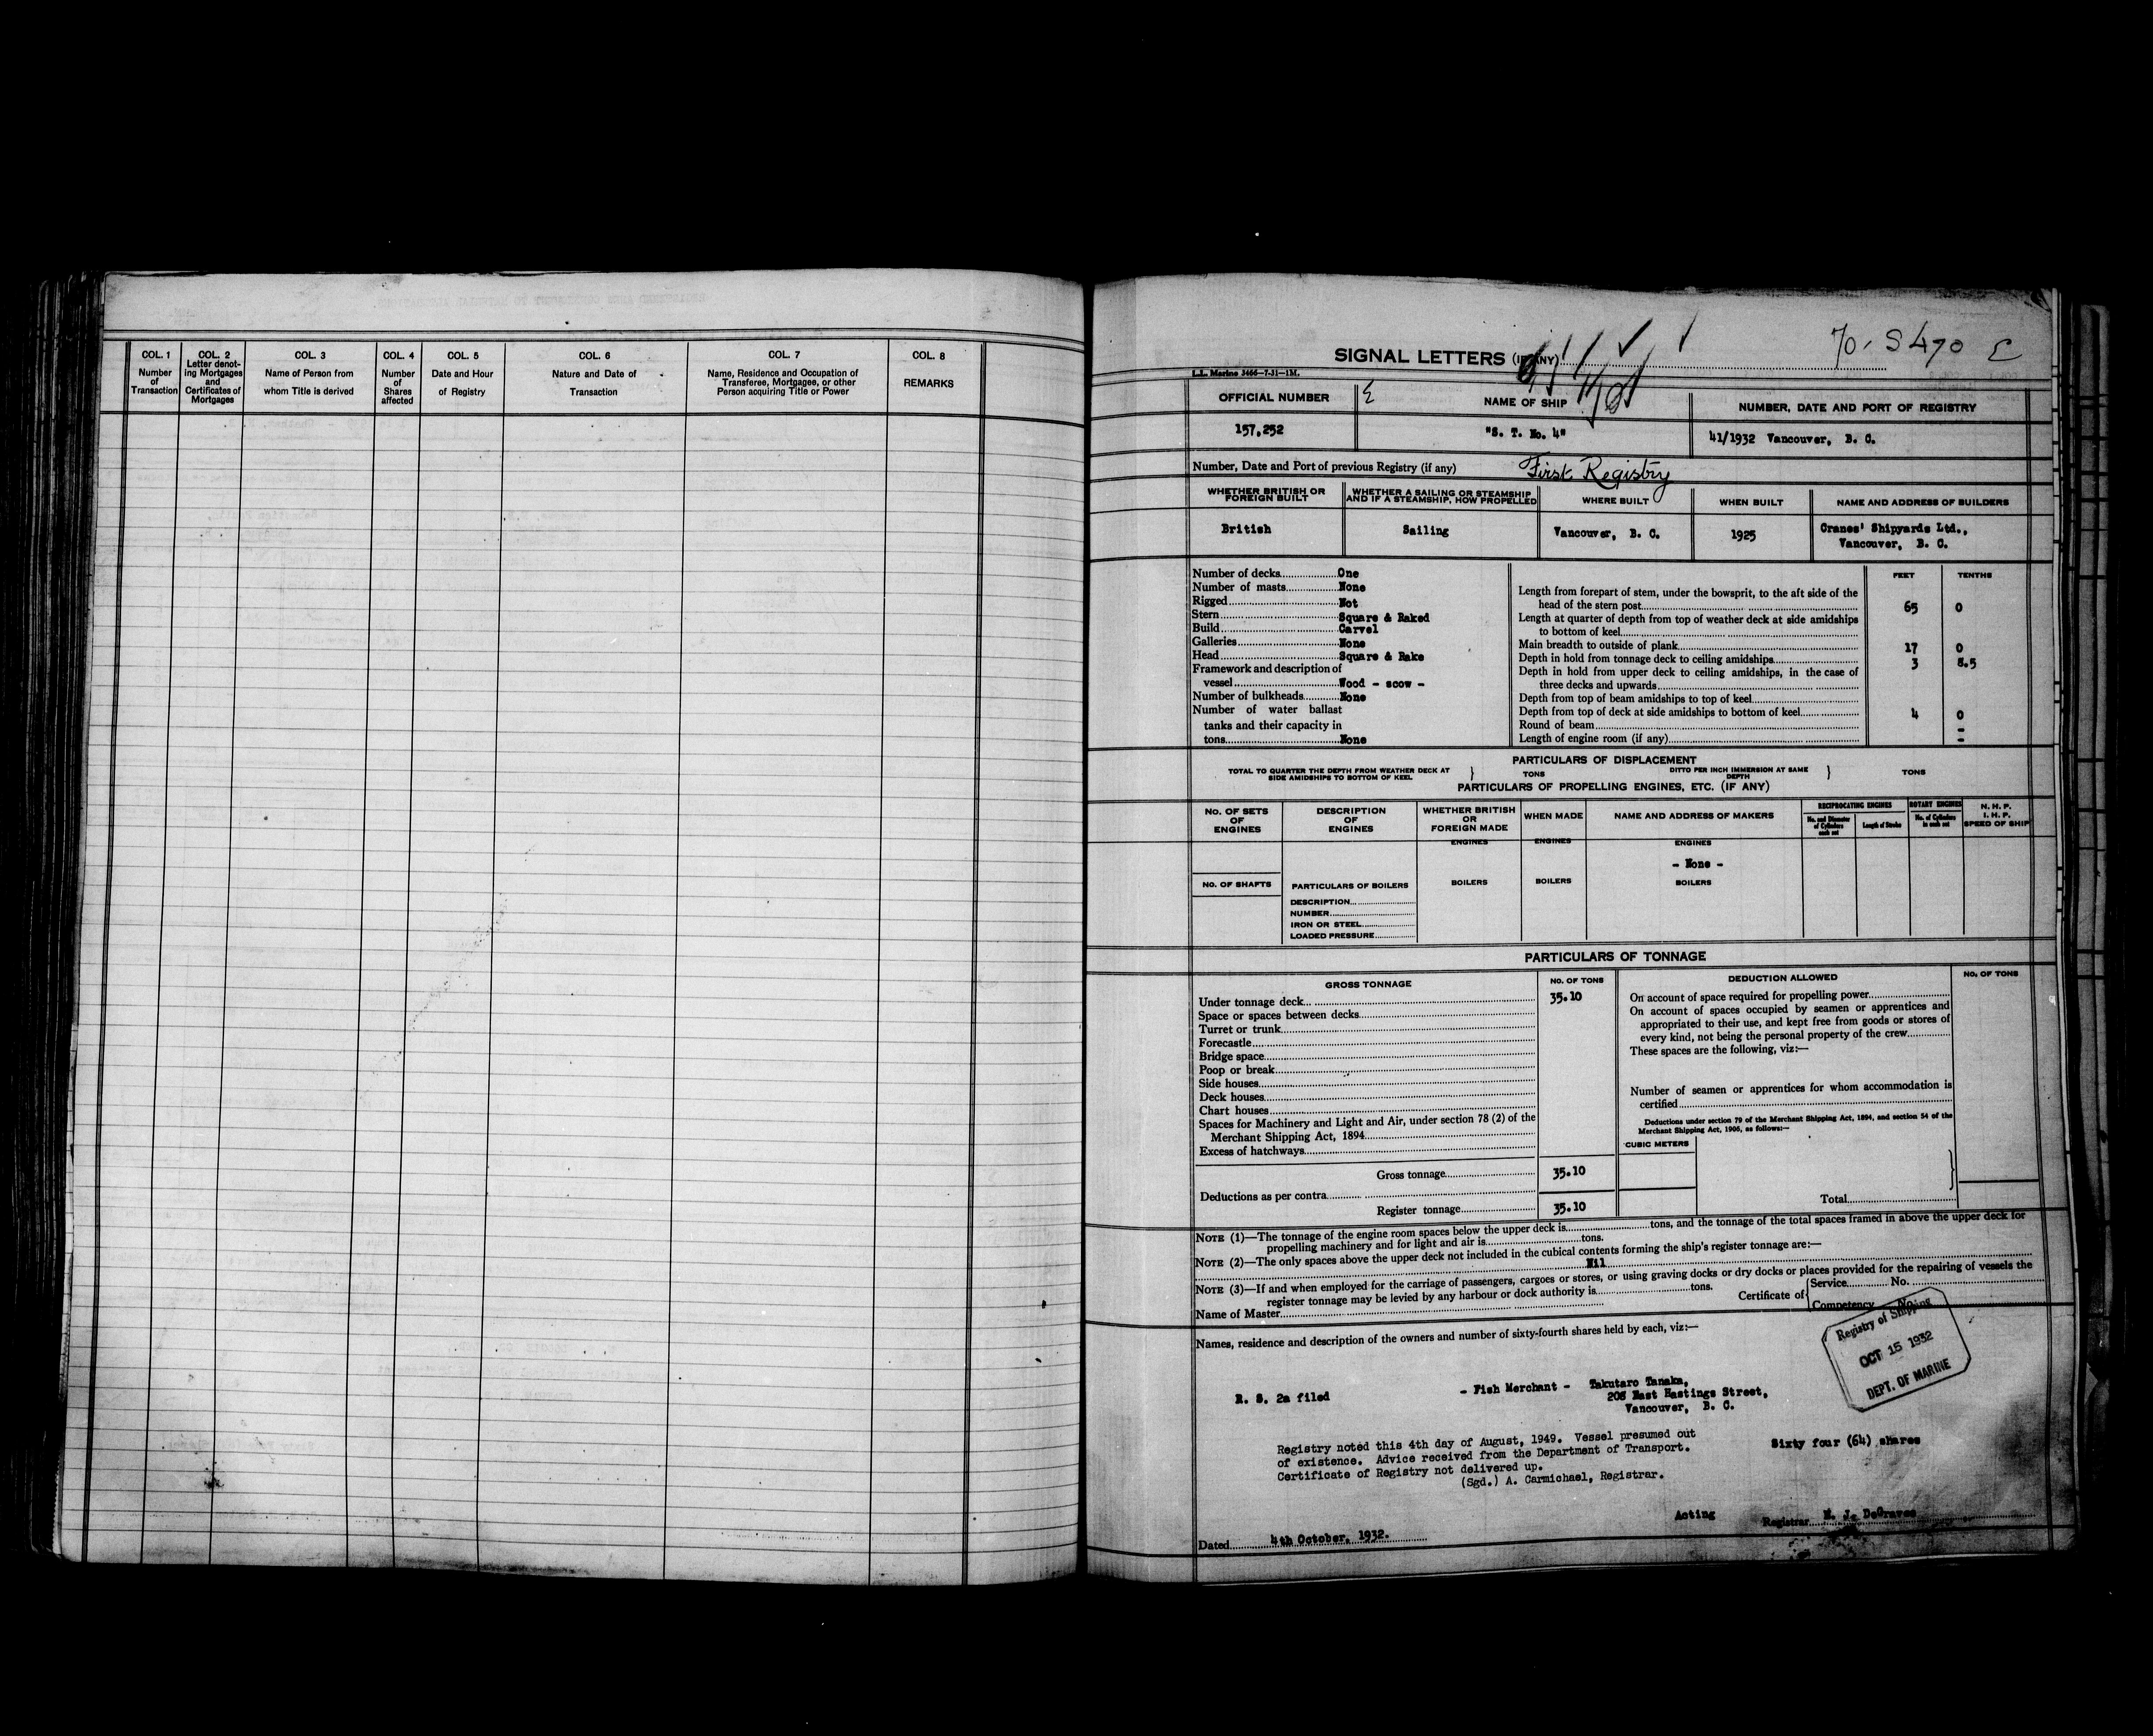 COL. 1
Number
of
Transaction
COL. 2
Letter denot-
ing Mortgages
and
Certificates of
Mortgages
COL. 3
Name of Person from
whom Title is derived
COL. 4
Number
of
Shares
affected
COL. 5
Date and Hour
of Registry
COL. 6
Nature and Date of
Transaction
COL. 7
Name, Residence and Occupation of
Transferee, Mortgagee, or other
Person acquiring Title or Power
COL. 8
REMARKS
70-S470 E
SIGNAL LETTERS (IF ANY)
L.L. Marine 3466—7-31—1M.
OFFICIAL NUMBER
157,252
NAME OF SHIP
"S. T. No. 4"
NUMBER, DATE AND PORT OF REGISTRY
41/1932 Vancouver, B. C.
Number, Date and Port of previous Registry (if any) First Registry
WHETHER BRITISH OR
FOREIGN BUILT
British
WHETHER A SAILING OR STEAMSHIP
AND IF A STEAMSHIP, HOW PROPELLED
Sailing
WHERE BUILT
Vancouver, B. C.
WHEN BUILT
1925
NAME AND ADDRESS OF BUILDERS
Cranes' Shipyards Ltd.,
Vancouver, B. C.
Number of decks One
Number of masts None
Rigged Not
Stern Square & Raked
Build Carvel
Galleries None
Head Square & Rake
Framework and description of
vessel Wood - scow -
Number of bulkheads None
Number of water ballast
tanks and their capacity in
tons None
FEET TENTHS
Length from forepart of stem, under the bowsprit, to the aft side of the
head of the stern post 65 0
Length at quarter of depth from top of weather deck at side amidships
to bottom of keel
Main breadth to outside of plank 17 0
Depth in hold from tonnage deck to ceiling amidships 3 8.5
Depth in hold from upper deck to ceiling amidships, in the case of
three decks and upwards
Depth from top of beam amidships to top of keel
Depth from top of deck at side amidships to bottom of keel 4 0
Round of beam -
Length of engine room (if any) -
PARTICULARS OF DISPLACEMENT
TOTAL TO QUARTER THE DEPTH FROM WEATHER DECK AT
SIDE AMIDSHIPS TO BOTTOM OF KEEL } TONS
DITTO PER INCH IMMERSION AT SAME
DEPTH } TONS
PARTICULARS OF PROPELLING ENGINES, ETC. (IF ANY)
NO. OF SETS
OF
ENGINES
DESCRIPTION
OF
ENGINES
WHETHER BRITISH
OR
FOREIGN MADE
WHEN MADE
NAME AND ADDRESS OF MAKERS
RECIPROCATING ENGINES
No. and Diameter
of Cylinders
each set
Length of Stroke
ROTARY ENGINES
No. of Cylinders
in each set
N. H. P.
I. H. P.
SPEED OF SHIP
ENGINES ENGINES ENGINES
- None -
NO. OF SHAFTS
PARTICULARS OF BOILERS
BOILERS BOILERS BOILERS
DESCRIPTION
NUMBER
IRON OR STEEL
LOADED PRESSURE
PARTICULARS OF TONNAGE
GROSS TONNAGE NO. OF TONS
Under tonnage deck 35.10
Space or spaces between decks
Turret or trunk
Forecastle
Bridge space
Poop or break
Side houses
Deck houses
Chart houses
Spaces for Machinery and Light and Air, under section 78 (2) of the
Merchant Shipping Act, 1894
Excess of hatchways
Gross tonnage 35.10
Deductions as per contra
Register tonnage 35.10
DEDUCTION ALLOWED NO. OF TONS
On account of space required for propelling power
On account of spaces occupied by seamen or apprentices and
appropriated to their use, and kept free from goods or stores of
every kind, not being the personal property of the crew
These spaces are the following, viz:—
Number of seamen or apprentices for whom accommodation is
certified
Deductions under section 79 of the Merchant Shipping Act, 1894, and section 54 of the
Merchant Shipping Act, 1906, as follows:—
CUBIC METERS
Total
NOTE (1)—The tonnage of the engine room spaces below the upper deck is tons, and the tonnage of the total spaces framed in above the upper deck for
propelling machinery and for light and air is tons.
NOTE (2)—The only spaces above the upper deck not included in the cubical contents forming the ship's register tonnage are:—
Nil
NOTE (3)—If and when employed for the carriage of passengers, cargoes or stores, or using graving docks or dry docks or places provided for the repairing of vessels the
register tonnage may be levied by any harbour or dock authority is tons.
Name of Master Certificate of { Service No.
Competency No.
Registry of Shipping
OCT 15 1932
DEPT. OF MARINE
Names, residence and description of the owners and number of sixty-fourth shares held by each, viz:—
R. S. 2a filed
- Fish Merchant - Takutaro Tanaka,
208 East Hastings Street,
Vancouver, B. C.
Sixty four (64) shares
Registry noted this 4th day of August, 1949. Vessel presumed out
of existence. Advice received from the Department of Transport.
Certificate of Registry not delivered up.
(Sgd.) A. Carmichael, Registrar.
Acting
Registrar N. J. DeGraves
Dated 4th October, 1932.